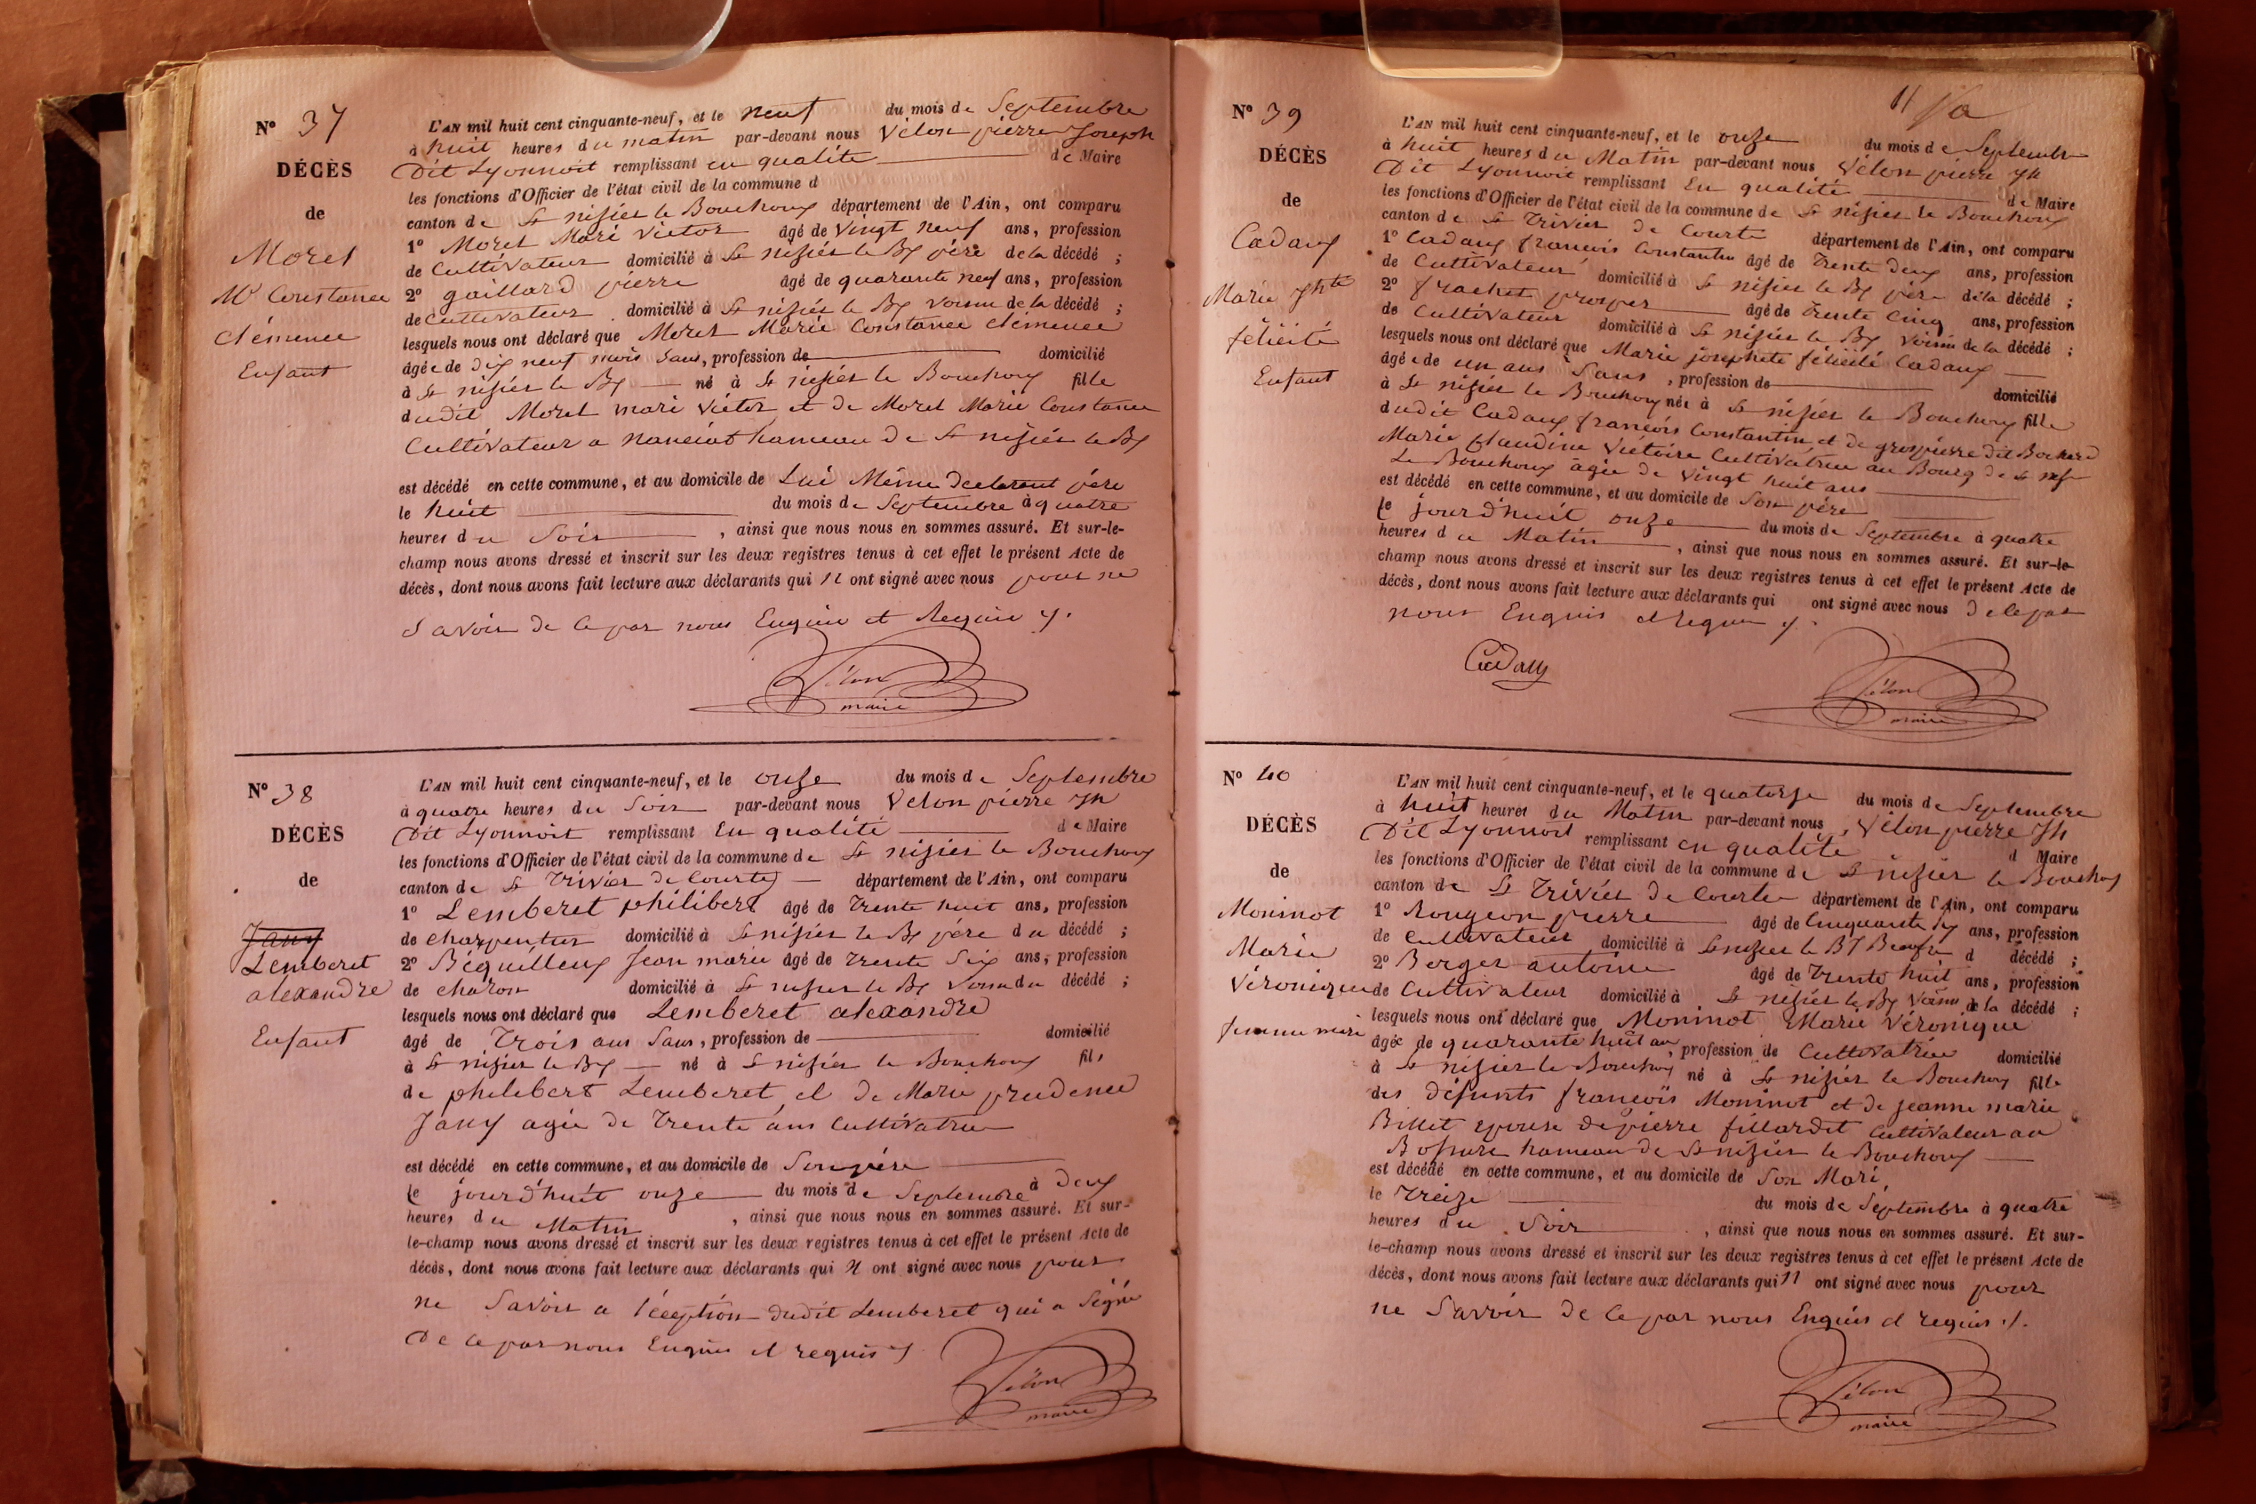 Nº 37
DÉCÈS
de
Morel
Mie Constance
clémence
Enfant
L'AN mil huit cent cinquante-neuf, et le neuf du mois de Septembre
à huit heures du matin par-devant nous Vélon pierre Joseph
Dit Lyonnoit remplissant en qualité de Maire
les fonctions d'Officier de l'état civil de la commune d
canton de St nisier le Bouchoux département de l'Ain, ont comparu
1º Morel Marie Victor âgé de Vingt neuf ans, profession
de Cultivateur domicilié à St nisier le Bx père de la décédé ;
2º gaillard pierre âgé de quarante neuf ans, profession
de Cultivateur domicilié à St nisier le Bx voisin de la décédé ;
lesquels nous ont déclaré que Morel Marie Constance clémence
âgée de dix neuf mois Sans, profession de domicilié
à St nisier le Bx né à St nisier le Bouchoux fille
dudit Morel marie Victor et de Morel Marie Constance
Cultivateur a nanciat hameau de St nisier le Bx
est décédé en cette commune, et au domicile de Lui Même declarant père
le huit du mois de Septembre à quatre
heures du Soir , ainsi que nous nous en sommes assuré. Et sur-le-
champ nous avons dressé et inscrit sur les deux registres tenus à cet effet le présent Acte de
décès, dont nous avons fait lecture aux déclarants qui n ont signé avec nous pour ne
Savoir de ce par nous Enquis et Requis
Vélon
maire
Nº 38
DÉCÈS
de
Jany
Lemberet
alexandre
Enfant
L'AN mil huit cent cinquante-neuf, et le onze du mois de Septembre
à quatre heures du Soir par-devant nous Vélon pierre Jh
Dit Lyonnoit remplissant En qualité de Maire
les fonctions d'Officier de l'état civil de la commune de St nisier le Bouchoux
canton de St Trivier de Courtes département de l'Ain, ont comparu
1º Lemberet philibert âgé de Trente huit ans, profession
de charpentier domicilié à St nisier le Bx père du décédé ;
2º Béquilleux Jean marie âgé de Trente Six ans, profession
de charon domicilié à St nisier le Bx voisin du décédé ;
lesquels nous ont déclaré que Lemberet alexandre
âgé de Trois ans Sans, profession de domicilié
à St nisier le Bx né à St nisier le Bouchoux fils
de philibert Lemberet et de Marie prudence
Jany agée de Trente ans Cultivatrice
est décédé en cette commune, et au domicile de Son père
le jourd'huit onze du mois de Septembre à deux
heures du Matin , ainsi que nous nous en sommes assuré. Et sur-
le-champ nous avons dressé et inscrit sur les deux registres tenus à cet effet le présent Acte de
décès, dont nous avons fait lecture aux déclarants qui n ont signé avec nous pour
ne Savoir a l'éception dudit Lemberet qui a Signé
De ce par nous Enquis et requis
Vélon
maire
Nº 39
DÉCÈS
de
Cadaux
Marie Jhte
félicité
Enfant
L'AN mil huit cent cinquante-neuf, et le onze du mois de Septembre
à huit heures du Matin par-devant nous Vélon pierre Jh
Dit Lyonnoit remplissant En qualité de Maire
les fonctions d'Officier de l'état civil de la commune de St nisier le Bouchoux
canton de St Trivier de Courte département de l'Ain, ont comparu
1º Cadaux francois Constantin âgé de Trente deux ans, profession
de Cultivateur domicilié à St nisier le Bx père de la décédé ;
2º frachet prosper âgé de Trente Cinq ans, profession
de Cultivateur domicilié à St nisier le Bx Voisin de la décédé ;
lesquels nous ont déclaré que Marie josephete félicité Cadaux
âgée de un ans Sans , profession de domicilié
à St nisier le Bouchoux née à St nisier le Bouchoux fille
dudit Cadaux francois Constantin, et de grospierre dit Bochard
Marie flaudine Victoire Cultivatrice au Bourg de St nis
Le Bouchoux agée de Vingt huit ans
est décédé en cette commune, et au domicile de Son père
le jourd'huit onze du mois de Septembre à quatre
heures du Matin , ainsi que nous nous en sommes assuré. Et sur-le-
champ nous avons dressé et inscrit sur les deux registres tenus à cet effet le présent Acte de
décès, dont nous avons fait lecture aux déclarants qui ont signé avec nous de ce par
nous Enquis et requis
Cadaux
Vélon
maire
Nº 40
DÉCÈS
de
Moninot
Marie
Véronique
L'AN mil huit cent cinquante-neuf, et le quatorze du mois de Septembre
à huit heures du Matin par-devant nous Vélon pierre Jh
Dit Lyonnoit remplissant en qualité d Maire
les fonctions d'Officier de l'état civil de la commune de St nisier le Bouchoux
canton de St Trivier de Courte département de l'Ain, ont comparu
1º Rongeon pierre âgé de Cinquante six ans, profession
de Cultivateur domicilié à St nisier le Bx d décédé ;
2º Berger antoine âgé de Trente huit ans, profession
de Cultivateur domicilié à St nisier le Bx Voisin de la décédé ;
lesquels nous ont déclaré que Moninot Marie Véronique
âgée de quarante huit ans, profession de Cultivatrice domicilié
à St nisier le Bouchoux né à St nisier le Bouchoux fille
des défunts francois Moninot et de jeanne marie
Billet epouse de pierre fillardet Cultivateur au
hameau de St nisier le Bouchoux
est décédé en cette commune, et au domicile de Son Mari,
le Treize du mois de Septembre à quatre
heures du Soir , ainsi que nous nous en sommes assuré. Et sur-
le-champ nous avons dressé et inscrit sur les deux registres tenus à cet effet le présent Acte de
décès, dont nous avons fait lecture aux déclarants qui n ont signé avec nous pour
ne Savoir de ce par nous Enquis et requis
Vélon
maire